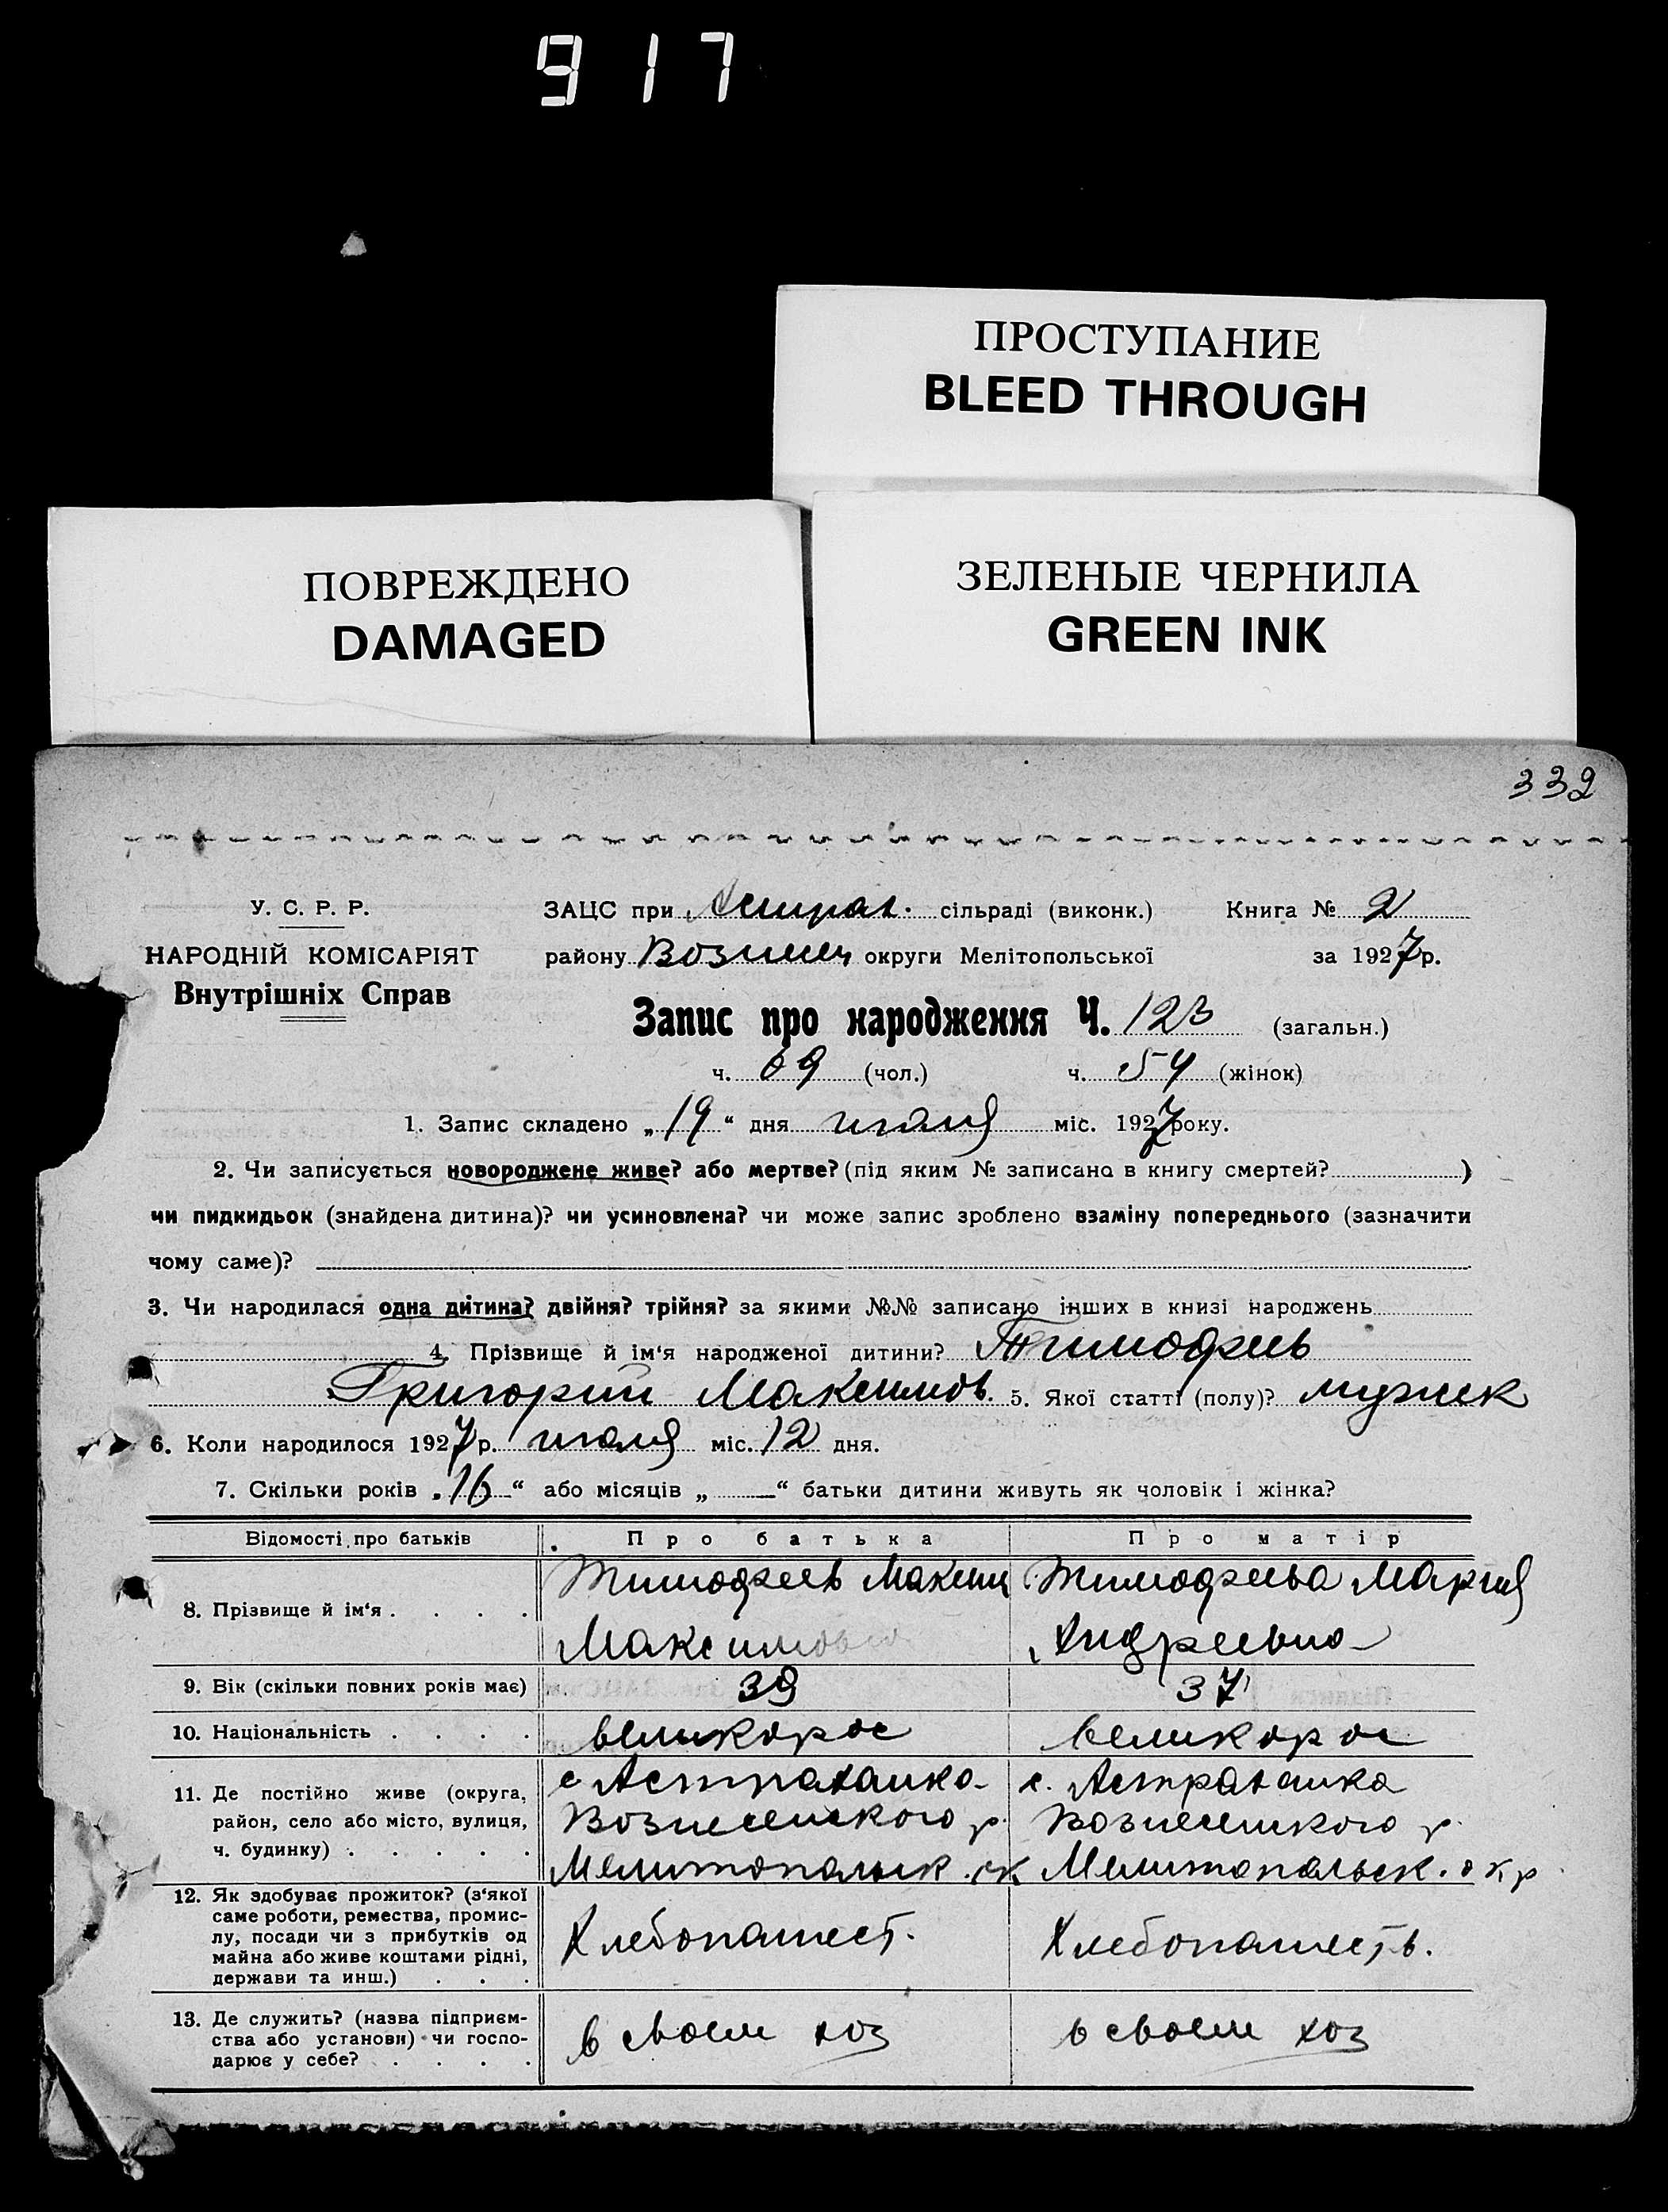 917
ПРОСТУПАНИЕ
BLEED THROUGH
ПОВРЕЖДЕНО
DAMAGED
ЗЕЛЕНЫЕ ЧЕРНИЛА
GREEN INK
332
У. С. Р. Р.
НАРОДНІЙ КОМІСАРІЯТ
Внутрішніх Справ
ЗАЦС при Астрах. сільраді (виконк.) Книга № 2
району Вознесен округи Мелітопольської за 1927 р.
Запис про народження Ч. 123 (загальн.)
ч. 69 (чол.) ч. 54 (жінок)
1. Запис складено „19“ дня июля міс. 1927 року.
2. Чи записується новороджене живе? або мертве? (під яким № записана в книгу смертей? )
чи пидкидьок (знайдена дитина)? чи усиновлена? чи може запис зроблено взаміну попереднього (зазначити
чому саме)?
3. Чи народилася одна дитина? двійня? трійня? за якими №№ записано інших в книзі народжень
4. Прізвище й ім‘я народженої дитини? Тимофеев
Григорий Максимов. 5. Якої статті (полу)? мужск
6. Коли народилося 1927 р. июля міс. 12 дня.
7. Скільки років „16“ або місяців „—“ батьки дитини живуть як чоловік і жінка?
Відомості про батьків Про батька Про матір
8. Прізвище й ім‘я . . . .
Тимофеев Максим
Максимович
Тимофеева Мария
Андреевна
9. Вік (скільки повних років має) 39 37
10. Національність . . . . великорос великорос
11. Де постійно живе (округа,
район, село або місто, вулиця,
ч. будинку) . . . . .
с Астраханка
Вознесенского р.
Мелитопольск. ок
с. Астраханка
Вознесенского р.
Мелитопольск. окр
12. Як здобуває прожиток? (з‘якої
саме роботи, ремества, промис-
лу, посади чи з прибутків од
майна або живе коштами рідні,
держави та инш.) . . .
Хлебопашест.
Хлебопашеств.
13. Де служить? (назва підприєм-
ства або установи) чи госпо-
дарює у себе? . . . .
в своем хоз
в своем хоз